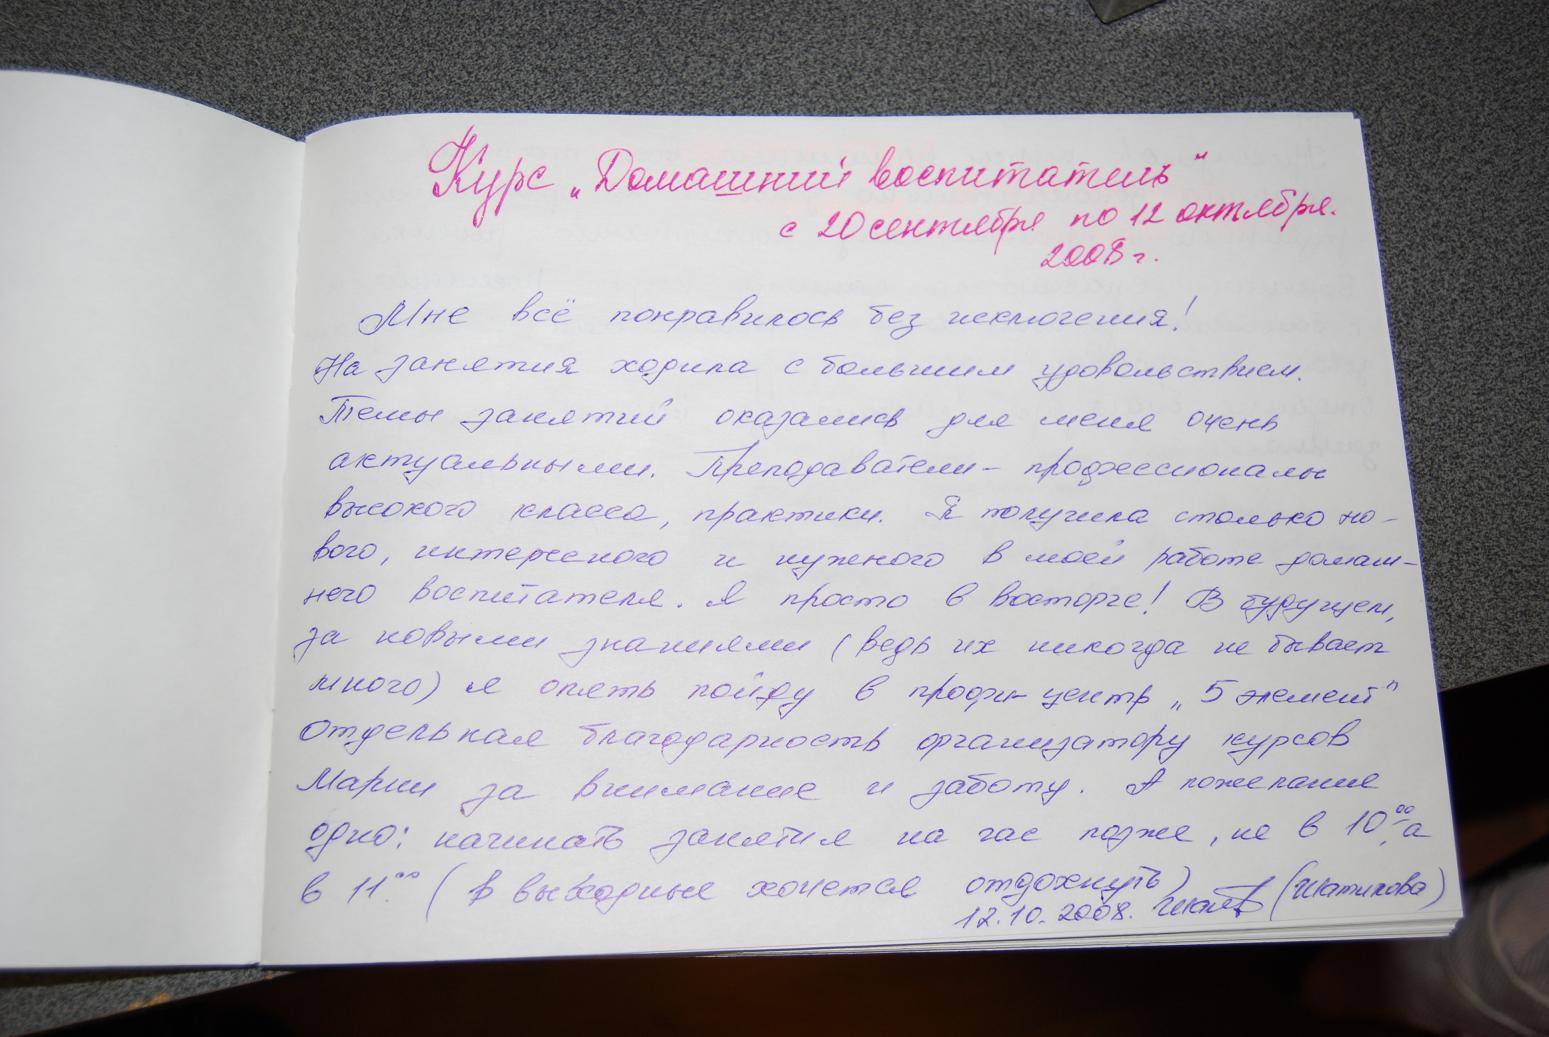 Курс „Домашний воспитатель“
с 20 сентября по 12 октября.
2008 г.
Мне всё понравилось без исключения!
На занятия ходила с большим удовольствием.
Темы занятий оказались для меня очень
актуальными. Преподаватели – профессионалы
высокого класса, практики. Я получила столько но-
вого, интересного и нужного в моей работе домаш-
него воспитателя. Я просто в восторге! В будущем,
за новыми знаниями (ведь их никогда не бывает
много) я опять пойду в профи-центр „5 элемент“
Отдельная благодарность организатору курсов
Марии за внимание и заботу. А пожелание
одно: начинать занятия на час позже, не в 10⁰⁰, а
в 11⁰⁰ (в выходные хочется отдохнуть)
12.10.2008. (Шатилова)